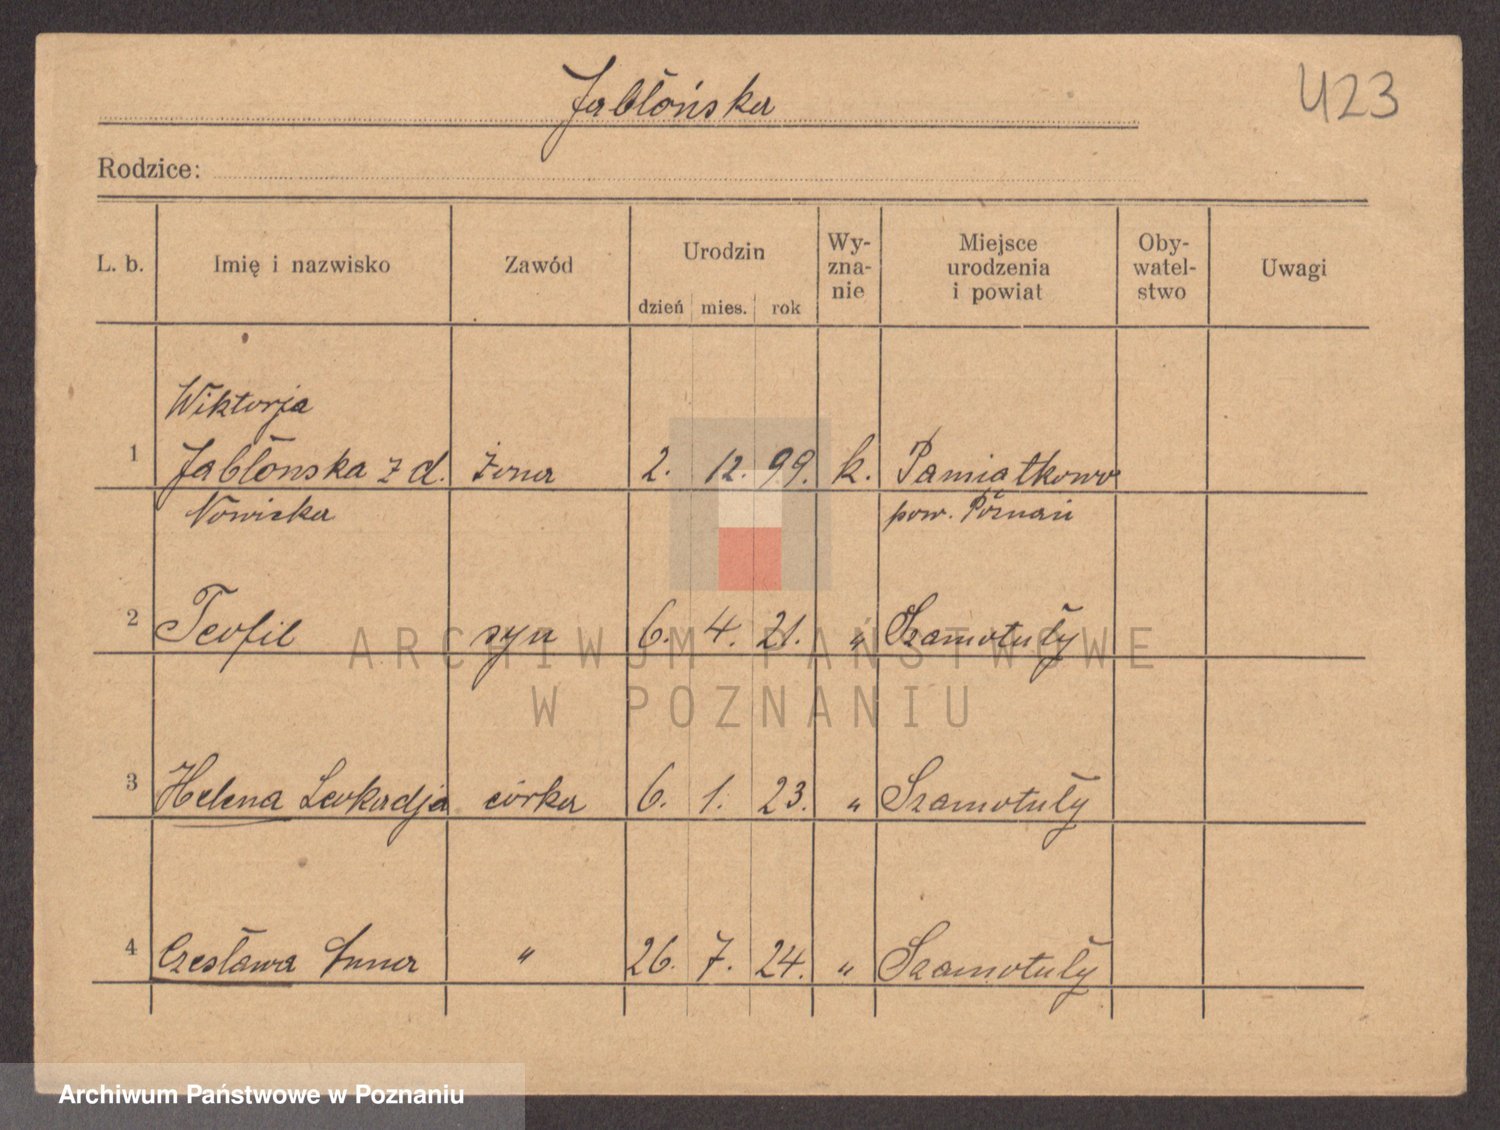 Jabłońska
423
Rodzice:
L. b. Imię i nazwisko Zawód Urodzin dzień mies. rok Wy-zna-nie Miejsce urodzenia i powiat Oby-watel-stwo Uwagi
Wiktorja
1 Jabłońska z d. żona 2. 12. 99. k. Pamiątkowo
Nowicka pow. Poznań
2 Teofil syn 6. 4. 21. " Szamotuły
ARCHIWUM PAŃSTWOWE
W POZNANIU
3 Helena Leokadja córka 6. 1. 23. " Szamotuły
4 Czesława Anna " 26. 7. 24. " Szamotuły
Archiwum Państwowe w Poznaniu